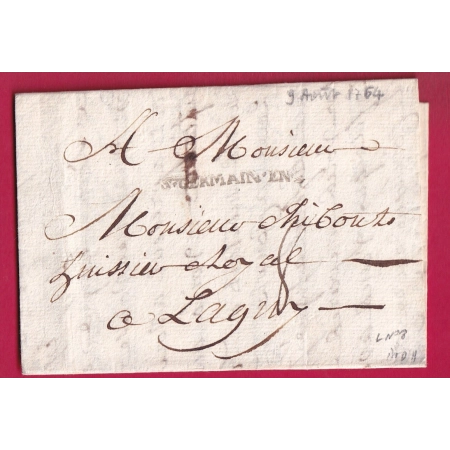 9 Août 1764
A Monsieur
St GERMAIN EN
Monsieur Thibout
huissier Royal
a Lagny
8
L N°8